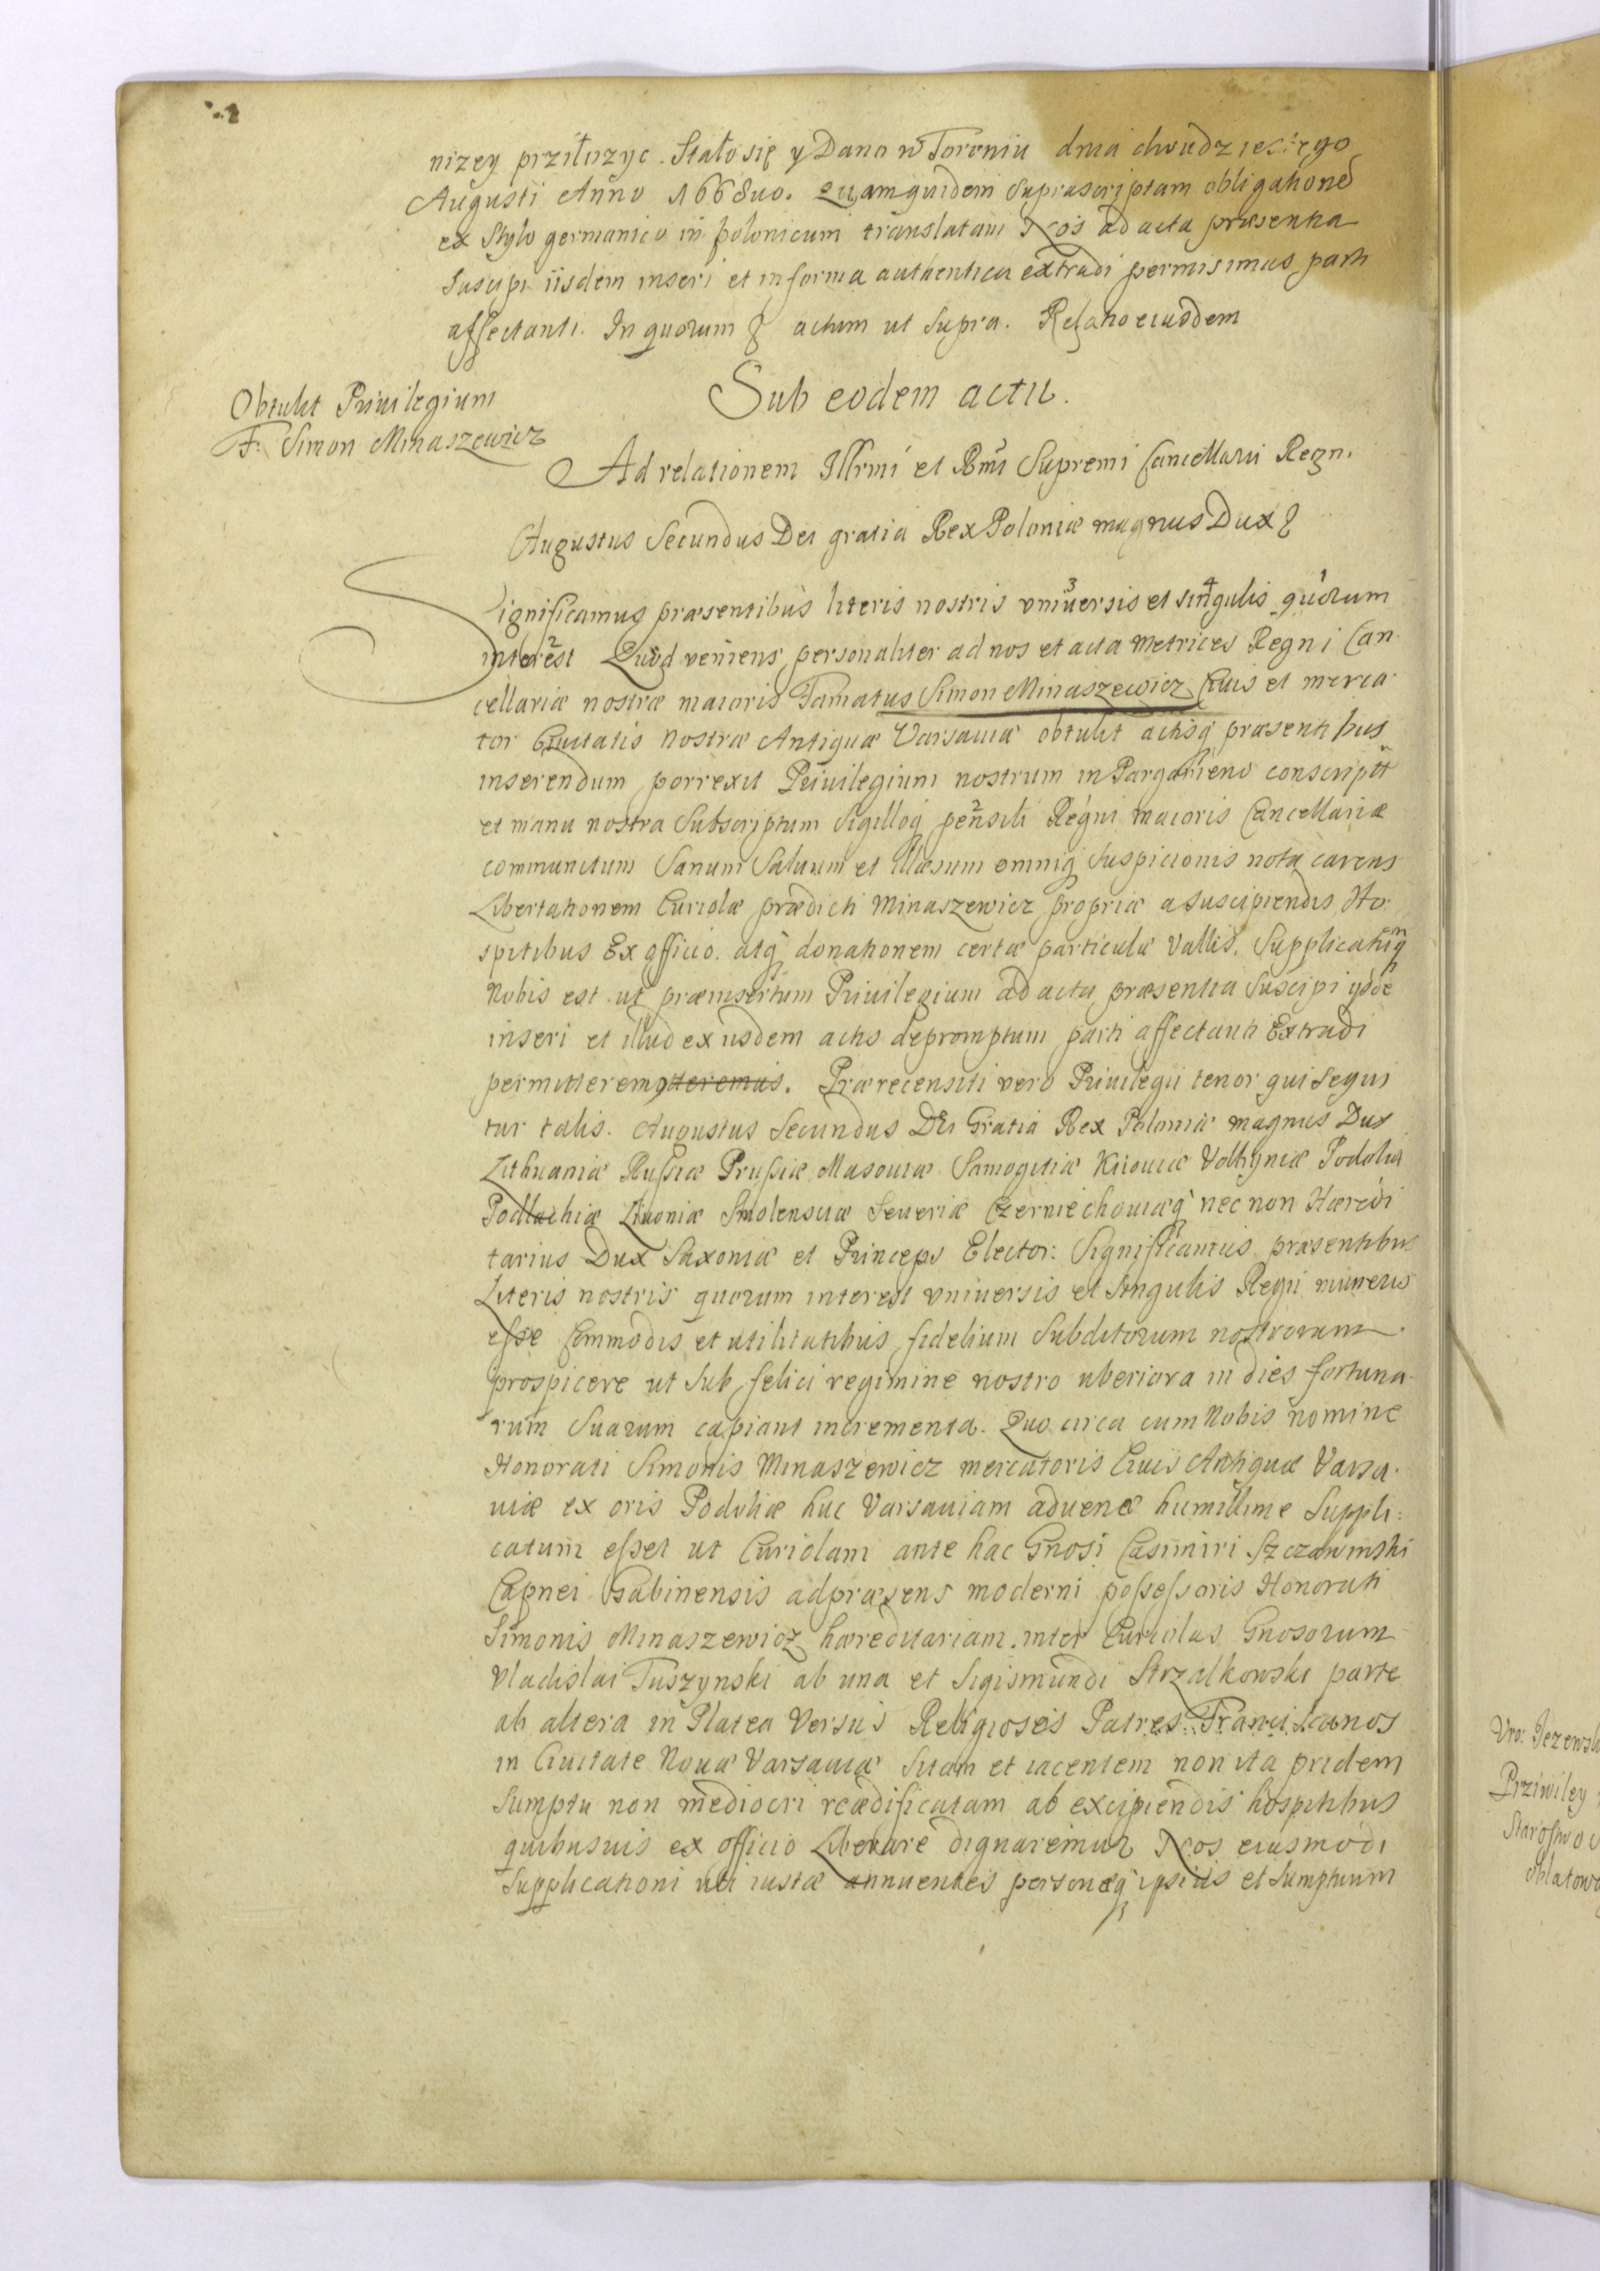 nizey przilozyc. Stało się y Dano w Toroniu dnia dwudziestego
Augusti Anno 1668uo. Quamquidem suprascriptam obligatione
ex Stylo germanico in polonicum translatam Nos ad acta præsentia
suscipi iisdem inseri et in forma authentica extradi permisimus parti
affectanti. In quorum actum ut supra. Relatio eiusdem
Obtulit Priuilegium
F. Simon Minaszewicz
Sub eodem actu.
Ad relationem Illrmi et Rmi Supremi Cancellarii Regn.
Augustus Secundus Dei gratia Rex Poloniæ magnus Dux
Significamus præsentibus literis nostris vniuersis et singulis quorum
interest Quod veniens personaliter ad nos et acta Metrices Regni Can
cellariæ nostræ maioris Famatus Simon Minaszewicz Ciuis et merca
tor Ciuitatis nostræ Antiquæ Varsauiæ obtulit actisq præsentibus
inserendum porrexit Priuilegium nostrum in Pargameno conscriptu
et manu nostra Subscriptum Sigilloq pensili Regni maioris Cancellariæ
communitum Sanum Saluum et illæsum omniq suspicionis nota carens
Libertationem Curiolæ prædicti Minaszewicz propriæ a suscipiendis Ho
spitibus Ex officio. atq donationem certæ particulæ vallis. Supplicatumq
Nobis est ut præinsertum Priuilegium ad acta præsentia suscipi ysde
inseri et illud ex iisdem actis depromptum parti affectanti Extradi
permitteremq tteremus. Prærecensiti vero Priuilegii tenor qui sequi
tur talis. Augustus Secundus Dei Gratia Rex Poloniæ magnus Dux
Lithuaniæ Rußiæ Prußiæ Masouiæ Samogitiæ Kiiouiæ Volhyniæ Podoliæ
Podlachiæ Liuoniæ Smolensciæ Seueriæ Czerniechouiæq nec non Hæredi
tarius Dux Saxoniæ et Princeps Elector: Significamus præsentibus
Literis nostris quorum interest vniuersis et Singulis Regii muneris
esse Commodis et utilitatibus fidelium Subditorum nostrorum
prospicere ut Sub felici regimine nostro uberiora in dies fortuna
rum Suarum capiant incrementa. Quo circa cum Nobis nomine
Honorati Simonis Minaszewicz mercatoris Ciuis Antiquæ Varsa.
uiæ ex oris Podoliæ huc Varsauiam aduenæ humillime Suppli:
catum esset ut Curiolam ante hac Gnosi Casimiri Szczawinski
Capnei Gabinensis adpræsens moderni possessoris Honorati
Simonis Minaszewicz hæreditariam. inter Curiolas Gnosorum
Vladislai Tuszynski ab una et Sigismundi Strzalkowski parte
ab altera in Platea Versus Religiosos Patres Franciscanos
in Ciuitate Noua Varsauiæ Sitam et iacentem non ita pridem
Sumptu non mediocri reædificatam ab excipiendis hospitibus
quibusuis ex officio Liberare dignaremur Nos eiusmodi
Supplicationi uti iustæ annuentes personæq ipsius et Sumptuum
Vro: Jezewsk
Prziwiley
Starostwo
oblatow